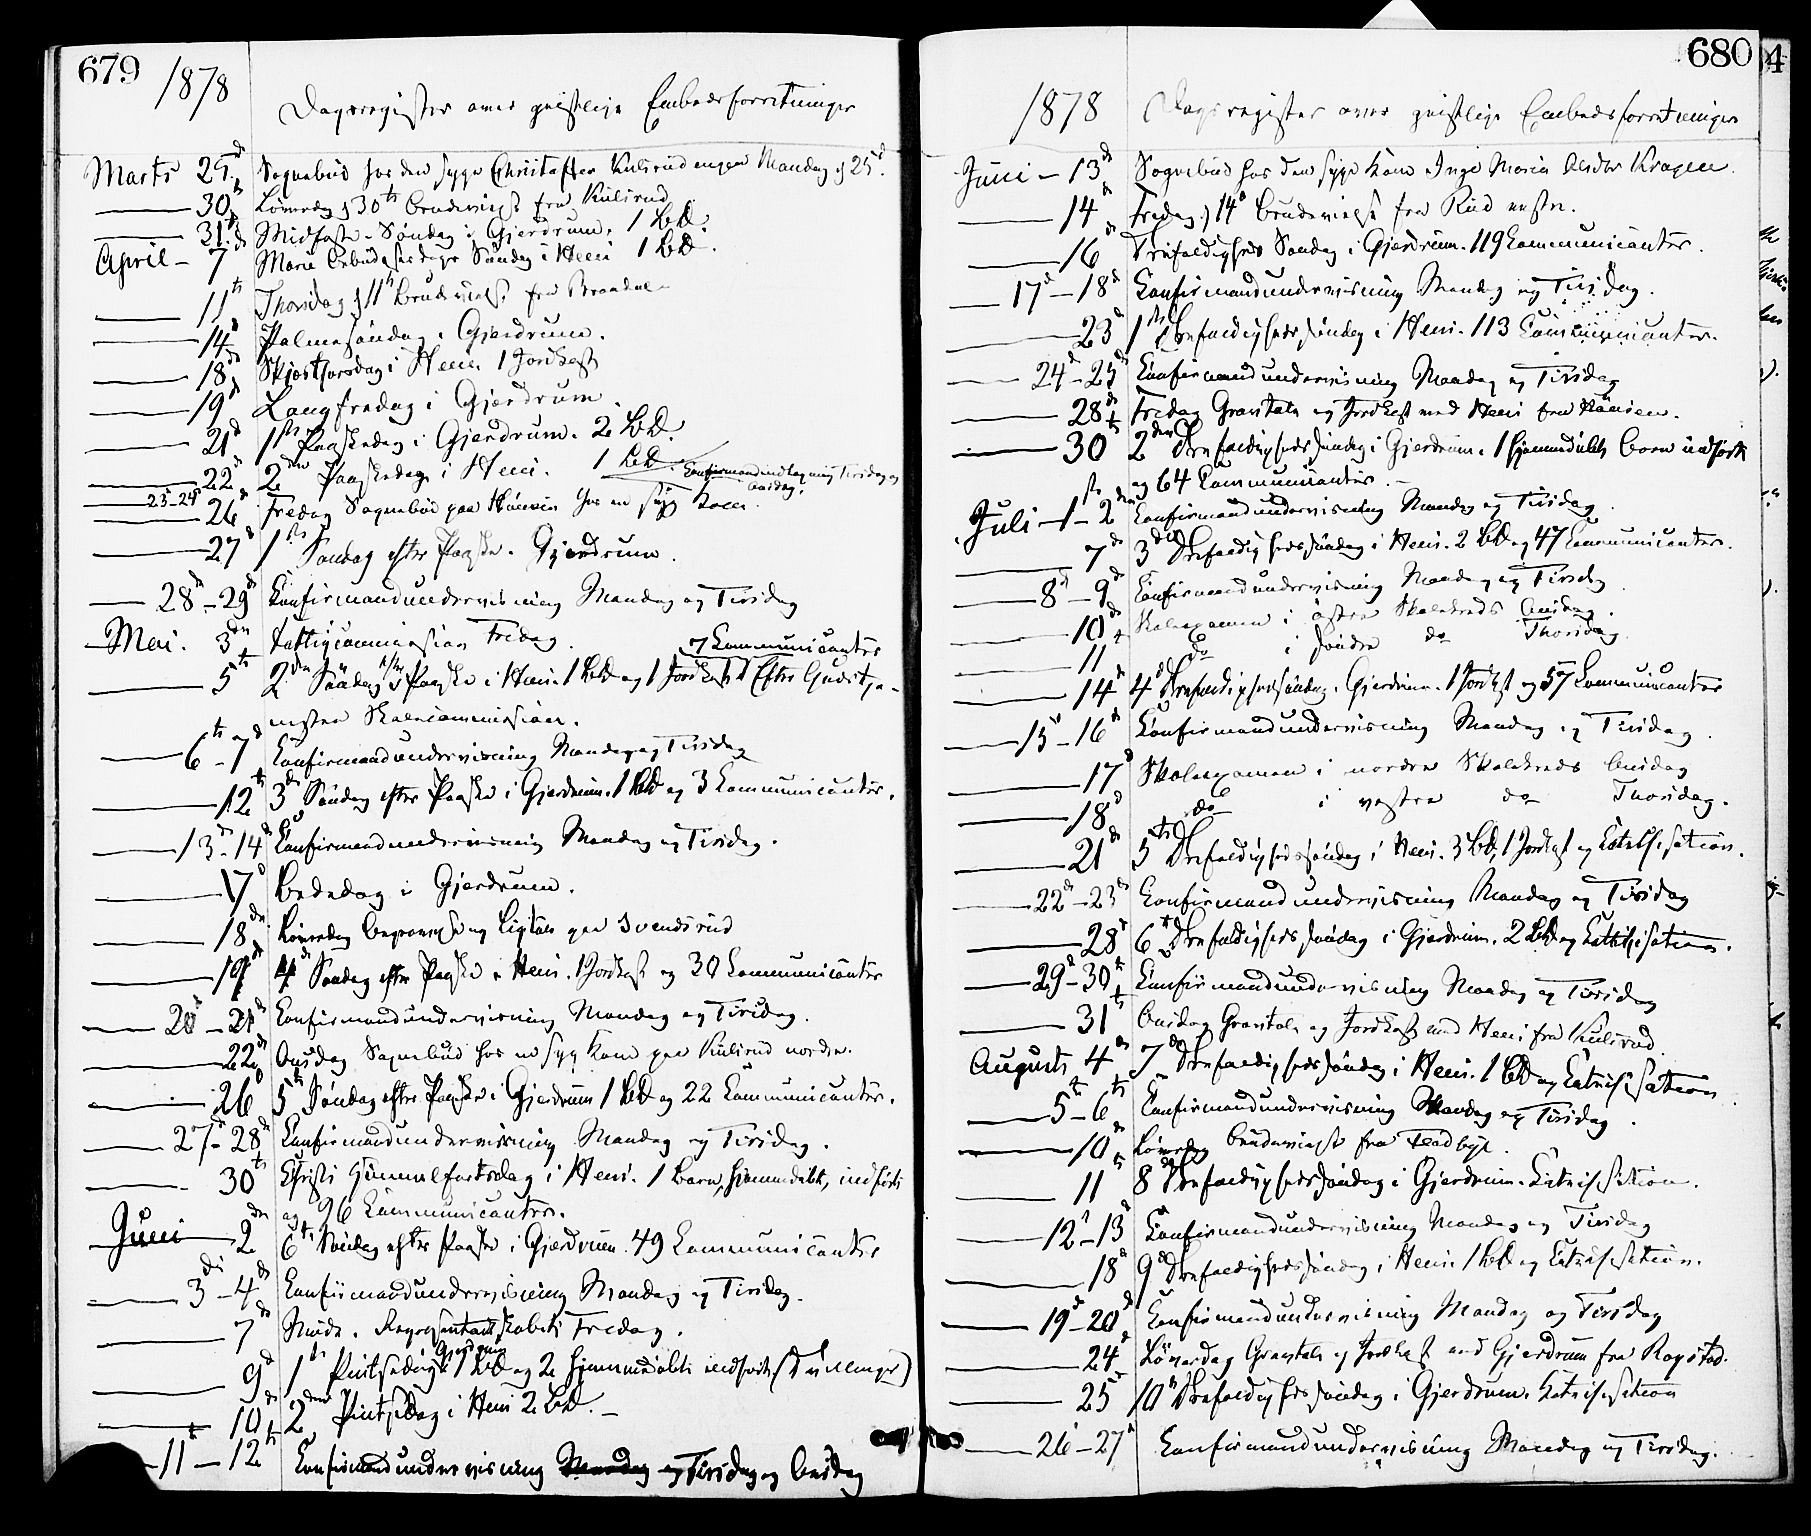 679
1878
Dagsregister over geistlige Embedsforretninger
Marts 25de Sognebud hos den syge Mandag d 25de
30 Løverdag d 30te Brudevielse fra Kulsrud
31te Midfaste-Søndag i Gjerdrum. 1 BD.
April - 7de Mariæ Bebudelsesdags Søndag i Heni 1 BD.
11te Thorsdag d 11te Brudevielse fra
14de Palmesøndag i Gjerdrum.
18de Skjærthorsdag i Heni. 1 Jordkast
19de Langfredag i Gjerdrum.
21de 1ste Paaskedag i Gjerdrum. 2 BD.
22de 2den Paaskedag i Heni. 1 BD.
23-24de Confirmandindtagning Tirsdag og Onsdag.
26de Fredag Sognebud paa hos en syg Kone.
27de 1ste Søndag efter Paaske. Gjerdrum.
28de-29de Confirmandundervisning Mandag og Tirsdag
Mai. 3die Fattigcommission Fredag
5te 2den Søndag efter Paaske i Heni. 1 BD og 1 Jordkast 7 Communicanter Efter Gudstje-
nesten Skolecommission.
6te-7de Confirmandundervisning Mandag og Tirsdag
12te 3die Søndag efter Paaske i Gjerdrum. 1 BD og 3 Communicanter.
13de-14de Confirmandundervisning Mandag og Tirsdag.
17de Bededag i Gjerdrum.
18de Løverdag Begravelse og Ligtale paa Svendsrud
19de 4de Søndag efter Paaske i Heni. 1 Jordkast og 30 Communicanter
20de-21de Confirmandundervisning Mandag og Tirsdag.
22de Onsdag Sognebud hos en syg Kone paa Kulsrud nordre.
26 5te Søndag efter Paaske i Gjerdrum 1 BD og 22 Communicanter.
27de-28de Confirmandundervisning Mandag og Tirsdag.
30te Christi Himmelfartsdag i Heni. 1 Barn, hjemmedøbt, indført
og 26 Communicanter.
Juni 2den 6te Søndag efter Paaske i Gjerdrum. 49 Communicanter
3die-4de Confirmandundervisning Mandag og Tirsdag.
7de Møde i Repræsentantskabet Fredag.
9de 1ste Pintsedag Gjerdrum 1 BD og 2 hjemmedøbte indførte (Tvillinger)
10de 2den Pintsedag i Heni 2 BD.
11te-12te Confirmandundervisning Mandag og Tirsdag og Onsdag
680
1878
Dagsregister over geistlige Embedsforretninger
Juni - 13de Sognebud hos den syge Kone Inge Maria Kragen.
14de Fredag d 14de Brudevielse fra Rud vestre.
16de Trefoldigheds Søndag i Gjerdrum. 119 Communicanter.
17de-18de Confirmandundervisning Mandag og Tirsdag.
23de 1ste Trefoldighedssøndag i Heni. 113 Communicanter.
24de-25de Confirmandundervisning Mandag og Tirsdag
28de Fredag Gravtale og Jordkast ved Heni fra
30te 2den Trefoldighedssøndag i Gjerdrum. 1 hjemmedøbt Barn indført
og 64 Communicanter.
Juli 1ste-2den Confirmandundervisning Mandag og Tirsdag.
7de 3die Trefoldighedssøndag i Heni. 2 BD og 47 Communicanter.
8de-9de Confirmandundervisning Mandag og Tirsdag
10de Skoleexamen i østre Skolekreds Onsdag.
11te do i søndre do Thorsdag.
14de 4de Trefoldighedssøndag. Gjerdrum. 1 Jordkast og 57 Communicanter
15de-16de Confirmandundervisning Mandag og Tirsdag.
17de Skoleexamen i nordre Skolekreds Onsdag
18de do i vestre do Thorsdag.
21de 5te Trefoldighedssøndag i Heni. 3 BD, 1 Jordkast og Catechisation.
22de-23de Confirmandundervisning Mandag og Tirsdag
28de 6te Trefoldighedssøndag i Gjerdrum. 2 BD og Catechisation.
29de-30te Confirmandundervisning Mandag og Tirsdag
31te Onsdag Gravtale og Jordkast ved Heni fra Kulsrud.
Augusti 4de 7de Trefoldighedssøndag i Heni. 1 BD og Catechisation
5te-6te Confirmandundervisning Mandag og Tirsdag.
10de Løverdag Brudevielse fra
11te 8de Trefoldighedssøndag i Gjerdrum. Catechisation.
12te-13de Confirmandundervisning Mandag og Tirsdag
18de 9de Trefoldighedssøndag i Heni. 1 BD og Catechisation.
19de-20de Confirmandundervisning Mandag og Tirsdag
24de Løverdag Gravtale og Jordkast ved Gjerdrum fra Rogstad.
25de 10de Trefoldighedssøndag i Gjerdrum. Catechisation
26de-27de Confirmandundervisning Mandag og Tirsdag.